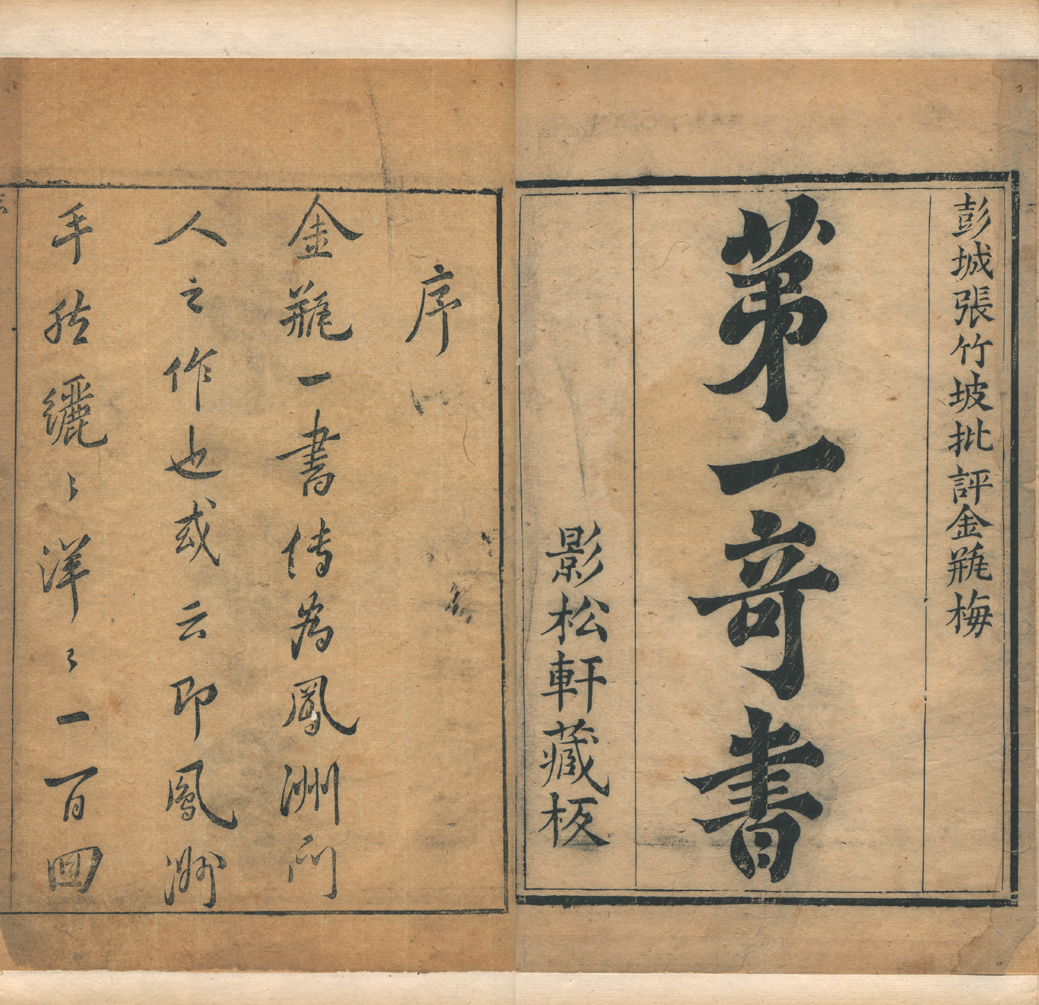 彭城張竹坡批評金瓶梅
苐一竒書
影松軒藏板
序
金瓶一書傳為鳳洲門
人之作也或云即鳳洲
手然纚〻洋〻一百回